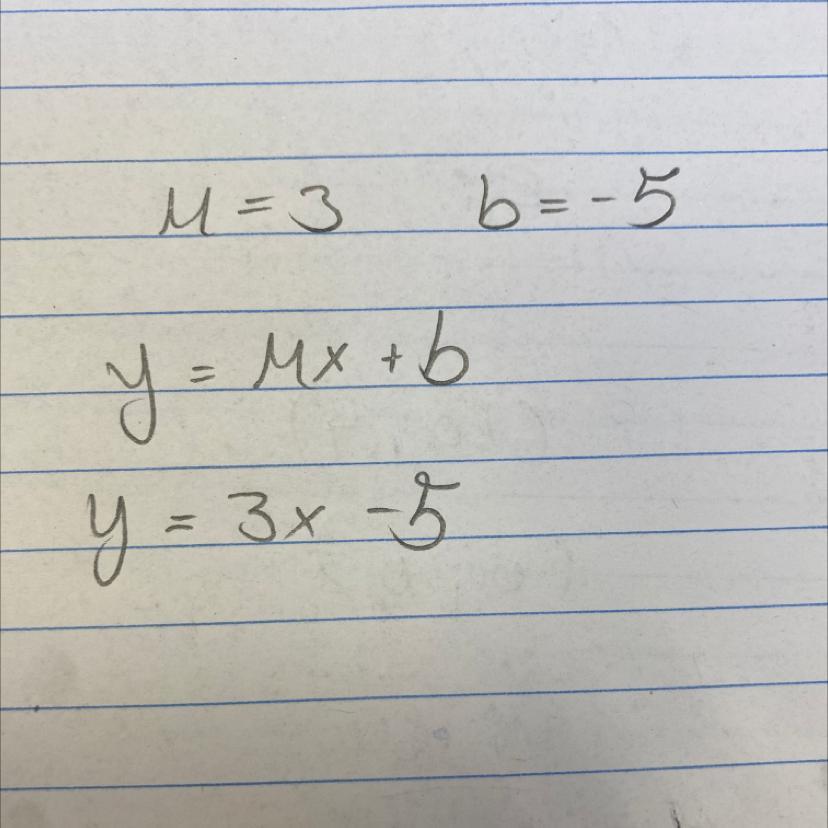 M = 3 b = -5
y = Mx + b
y = 3x - 5